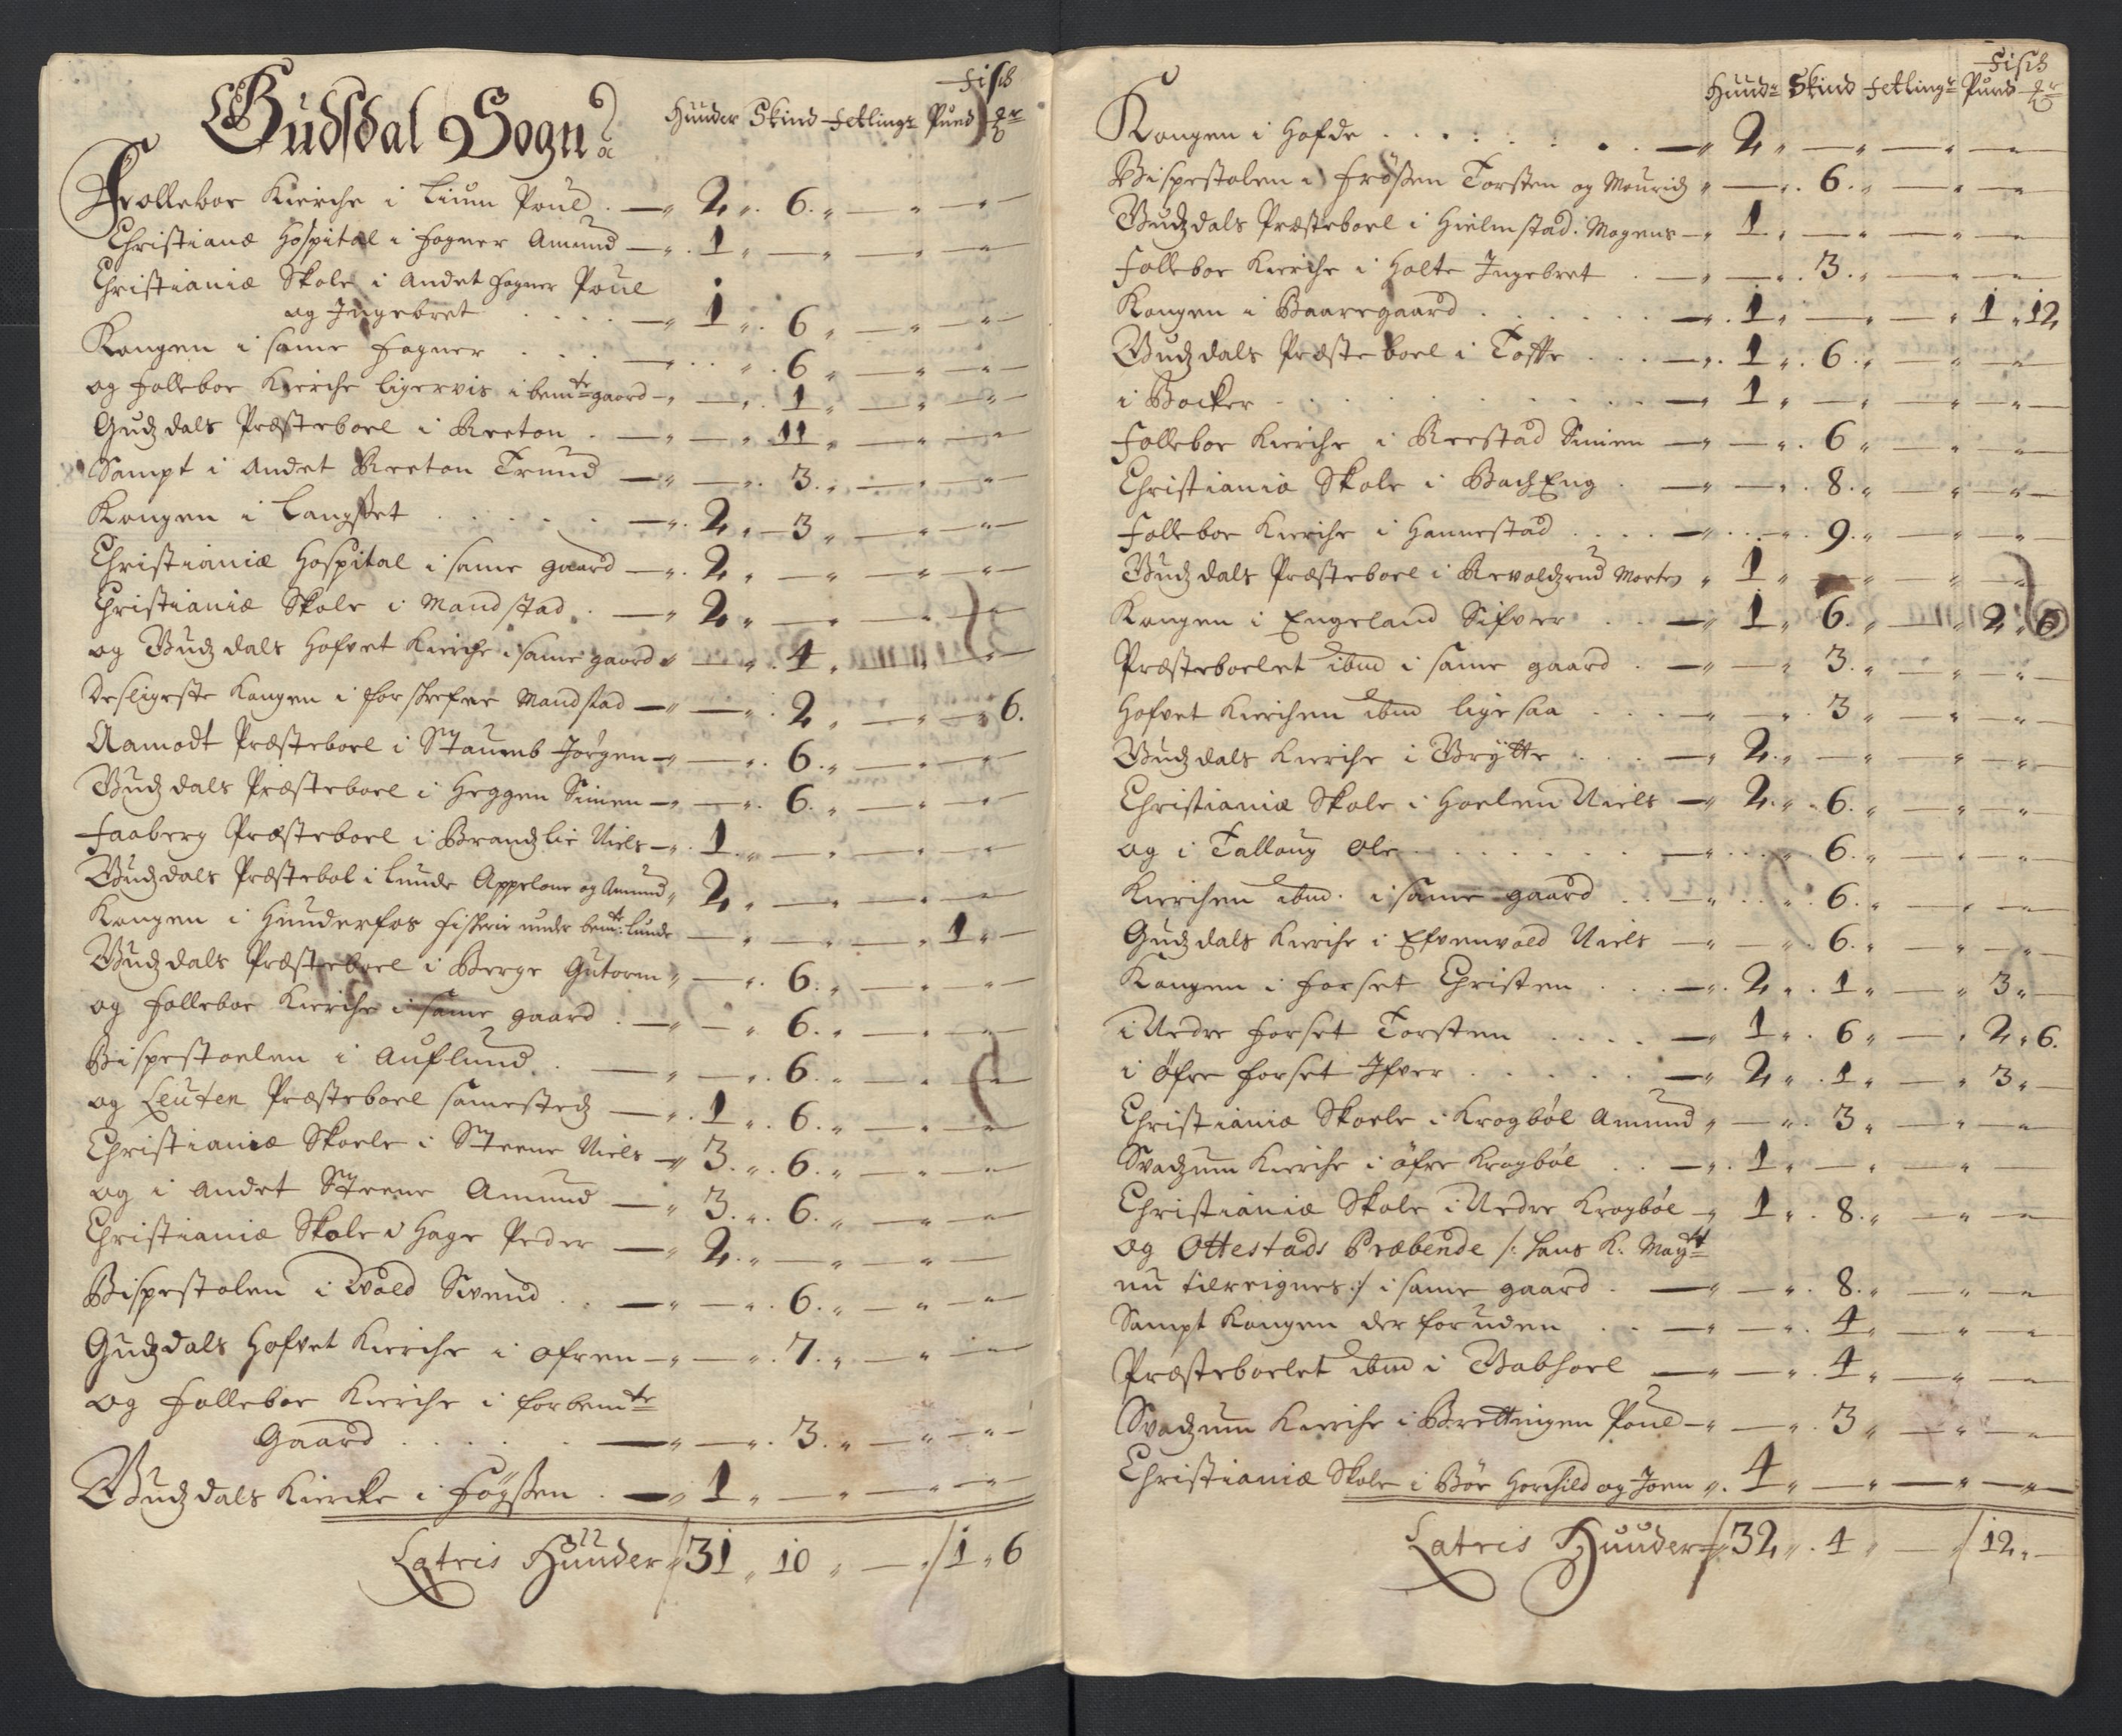 Fisch
Gudsdal Sogn
Huuder Skind Fetlingr Pund
Folleboe Kierche i Lium Poul — 2 „ 6 „ — „ — „ —
Christianæ Hospital i Fogner Amund — 1 „ — „ — „ —
Christianiæ Skole i Andet Fogner Poul
og Ingebret . . . . — 1 „ 6 „ — „ — „ —
Kongen i same Fogner . . . — „ 6 „ — „ — „ —
og Folleboe Kierche ligervis i bemte gaard — „ — „ 1 „ — „ — „ —
Gudzdals Præsteboel i Reeton . — „ — „ 11 „ — „ — „ —
Sampt i Andet Reeton Trund — „ — „ 3 „ — „ — „ —
Kongen i Langset . . . . . — „ 2 „ 3 „ — „ — „ —
Christianiæ Hospital i same gaard — „ 2 „ — „ — „ — „ —
Christianiæ Skole i Mandstad . — „ 2 „ — „ — „ — „ —
og Gudzdals Hofvet Kierche i same gaard „ — „ 4 „ — „ — „ —
Desligeste Kongen i forskrefne Mandstad — „ — „ 2 „ — „ — „ 6.
Aamodt Præsteboel i Staumb Jørgen — „ — „ 6 „ — „ — „ —
Gudzdals Præsteboel i Heggen Simen — „ — „ 6 „ — „ — „ —
Faaberg Præsteboel i Brandzlie Niels — „ 1 „ — „ — „ — „ —
Gudzdals Præstebol i Lunde Appelone og Amund „ 2 „ — „ — „ — „ —
Kongen i Hunderfos fischerie under bemte: Lunde — „ — „ — „ 1 „ —
Gudzdals Præsteboel i Berge Gutorm „ — „ 6 „ — „ — „ —
og Folleboe Kierche i same gaard . — „ — „ 6 „ — „ — „ —
Bispestoelen i Auflund . — „ — „ 6 „ — „ — „ —
og Leuten Præsteboel samestedz — „ 1 „ 6 „ — „ — „ —
Christianiæ Skoele i Steene Niels — „ 3 „ 6 „ — „ — „ —
og i Andet Steene Amund — „ 3 „ 6 „ — „ — „ —
Christianiæ Skole i Hage Peder — „ 2 „ — „ — „ — „ —
Bispestolen i Vold Svend . . — „ — „ 6 „ — „ — „ —
Gudzdals Hofvet Kierche i Ofren — „ — „ 7 „ — „ — „ —
og Folleboe Kierche i forbemte
Gaard . . . . . — „ — „ 3 „ — „ — „ —
Gudzdals Kiercke i Føyssen . — „ 1 „ — „ — „ — „ —
Latris Huuder „ 31 „ 10 „ — „ 1 „ 6
Fisch
Huudr Skind Fetlingr Pund
Kongen i Hofde . . . . . . . — „ 2 „ — „ — „ — „ —
Bispestolen i Frøssen Torsten og Mouridz „ — „ 6 „ — „ — „ —
Gudzdals Præsteboel i Hielmstad Mogens — „ 1 „ — „ — „ — „ —
Folleboe Kierche i Holte Ingebret . — „ — „ 3 „ — „ — „ —
Kongen i Baaregaard . . . . . — „ 1 „ — „ — „ 1 „ 12
Gudzdals Præsteboel i Tofte . . . — „ 1 „ 6 „ — „ — „ —
i Bocker . . . . . . . . — „ 1 „ — „ — „ — „ —
Folleboe Kierche i Reestad Simen — „ — „ 6 „ — „ — „ —
Christianiæ Skole i BachEng . — „ — „ 8 „ — „ — „ —
Folleboe Kierche i Hannestad . . . — „ — „ 9 „ — „ — „ —
Gudzdals Præsteboel i Revoldzrud Morten „ 1 „ — „ — „ — „ —
Kongen i Engeland Sifver . . — „ 1 „ 6 „ — „ 2 „ 6
Præsteboelet ibm i same gaard . — „ — „ 3 „ — „ — „ —
Hofvet Kierchen ibm lige saa . . . — „ — „ 3 „ — „ — „ —
Gudzdals Kierche i Brytte . . . — „ 2 „ — „ — „ — „ —
Christianiæ Skole i Hoelen Niels — „ 2 „ 6 „ — „ — „ —
og i Talloug Ole . . . . . . — „ . . 6 „ — „ — „ —
Kierchen ibm. i same gaard . . — „ . . 6 „ — „ — „ —
Gudzdals Kierche i Efvenvold Niels — „ — „ 6 „ — „ — „ —
Kongen i Forset Christen . . . — „ 2 „ 1 „ — „ 3 „ —
i Nedre Forset Torsten . . . . — „ 1 „ 6 „ — „ 2 „ 6.
i Øfre Forset Ifver . . . . . — „ 2 „ 1 „ — „ 3 „ —
Christianiæ Skoele i Krogbøl Amund „ — „ 3 „ — „ — „ —
Svadzum Kierche i Øfre Krogbøl . . — „ 1 „ — „ — „ — „ —
Christianiæ Skole i Nedre Krogbøl — „ 1 „ 8 „ — „ — „ —
og Ottestads Præbende /: Hans K: Maytt
nu tilreignes :/ i same gaard . — „ — „ 8 „ — „ — „ —
Sampt Kongen der foruden . . — „ — „ 4 „ — „ — „ —
Præsteboelet ibm i Babhoel — „ — „ 4 „ — „ — „ —
Svadzum Kierche i Brettingen Poul — „ — „ 3 „ — „ — „ —
Christianiæ Skole i Bøe Horchild og Joen „ 4 „ — „ — „ — „ —
Latris Huuder „ 32 „ 4 „ — „ 12 „ —